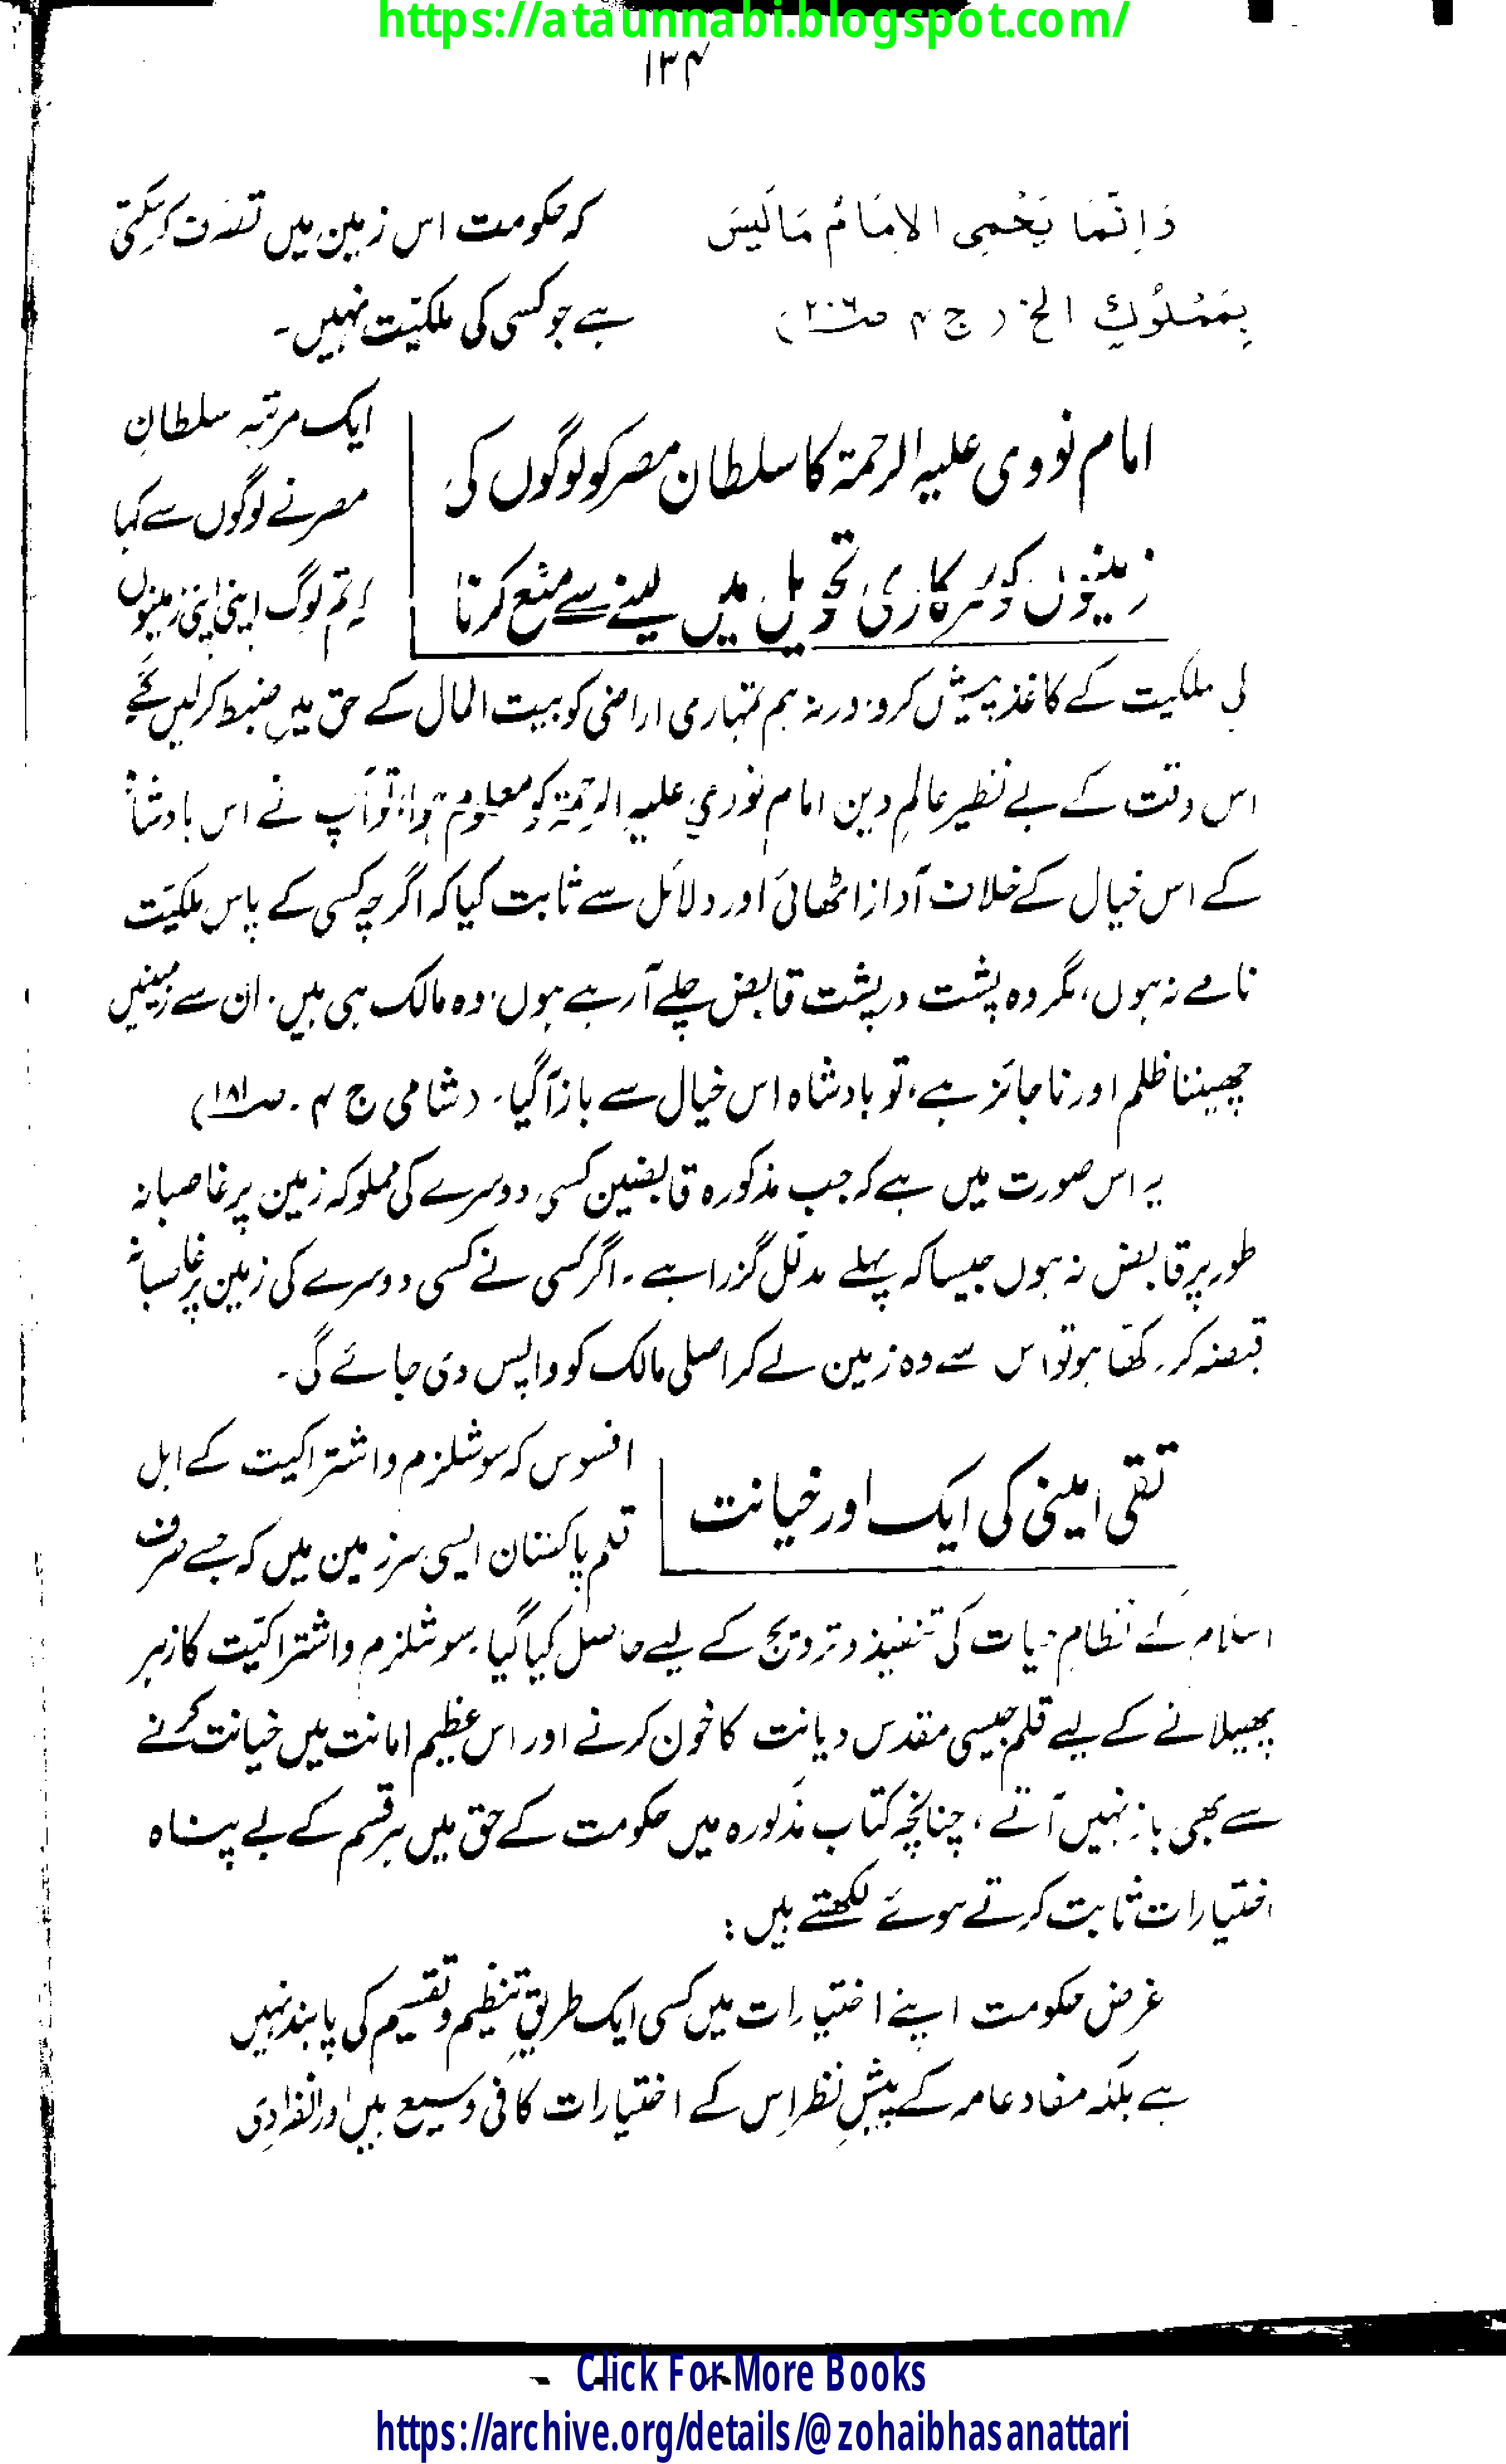 https://ataunnabi.blogspot.com/
۱۳۴
وَاِنَّمَا یَحْمِی الاِمَامُ مَالَیسَ
بِمَمْلُوْكٍ الخ (ج ۴ صـ۲۰۶)
کہ حکومت اس زمین میں تصرّف کر سکتی
ہے جو کسی کی ملکیّت نہیں۔
امام نووی علیہ الرحمۃ کا سلطان مصر کو لوگوں کی
زمینوں کو سرکاری تحویل میں لینے سے منع کرنا
ایک مرتبہ سلطانِ
مصر نے لوگوں سے کہا
کہ تم لوگ اپنی اپنی زمینوں
کی ملکیت کے کاغذ پیش کرو، ورنہ ہم تمہاری اراضی کو بیت المال کے حق میں ضبط کر لیں گے
اس وقت کے بے نظیر عالمِ دین امام نووی علیہ الرحمۃ کو معلوم ہوا، تو آپ نے اس بادشاہ
کے اس خیال کے خلاف آواز اٹھائی اور دلائل سے ثابت کیا کہ اگر چہ کسی کے پاس ملکیّت
نامے نہ ہوں، مگر وہ پشت در پشت قابض چلے آ رہے ہوں، وہ مالک ہی ہیں۔ ان سے زمینیں
چھیننا ظلم اور ناجائز ہے، تو بادشاہ اس خیال سے باز آگیا۔ (شامی ج ۴۔ صـ۱۸۱)
یہ اس صورت میں ہے کہ جب مذکورہ قابضین کسی دوسرے کی مملوکہ زمین پر غاصبانہ
طور پر قابض نہ ہوں جیسا کہ پہلے مدلّل گزرا ہے۔ اگر کسی نے کسی دوسرے کی زمین پر غاصبانہ
قبضہ کر رکھا ہو تو اس سے وہ زمین لے کر اصلی مالک کو واپس دی جائے گی۔
تقی امینی کی ایک اور خیانت
افسوس کہ سوشلزم و اشتراکیت کے اہل
قلم پاکستان ایسی سرزمین میں کہ جسے صرف
اسلام کے نظامِ حیات کی تنفیذ و ترویج کے لیے حاصل کیا گیا۔ سوشلزم و اشتراکیّت کا زہر
پھیلانے کے لیے قلم جیسی مقدس دیانت کا خون کرنے اور اس عظیم امانت میں خیانت کرنے
سے بھی باز نہیں آتے، چنانچہ کتاب مذکورہ میں حکومت کے حق میں ہر قسم کے بے پناہ
اختیارات ثابت کرتے ہوئے لکھتے ہیں:
غرض حکومت اپنے اختیارات میں کسی ایک طریقِ تنظیم و تقسیم کی پابند نہیں
ہے بلکہ مفاد عامہ کے پیشِ نظر اِس کے اختیارات کافی وسیع ہیں اور انفرادی
Click For More Books
https://archive.org/details/@zohaibhasanattari